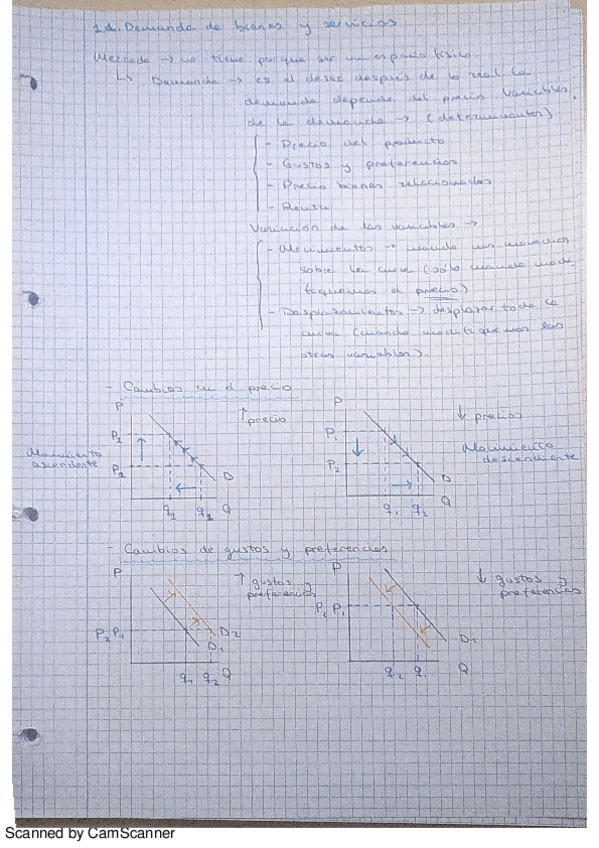 1.1. Demanda de bienes y servicios
Mercado → no tiene porque ser un espacio físico.
↳ Demanda → es el deseo después de lo real la
demanda depende del precio Variables
de la demanda → (determinantes)
- Precio del producto
- Gustos y preferencias
- Precio bienes relacionados
- Renta
Variación de las variables →
- Movimientos → cuando nos movemos
sobre la curva (sólo cuando modi-
fiquemos el precio)
- Desplazamientos → desplazar toda la
curva (cuando modifiquemos las
otras variables).
- Cambios en el precio
P
↑ precio
P2
Movimiento
ascendente
D
Q
P
↓ precios
P1
P2
Movimiento
descendente
D
q1 q2 Q
- Cambios de gustos y preferencias
P
↑ gustos y
preferencias
P2 P1
D2
D1
q1 q2 Q
P
↓ gustos y
preferencias
P2 P1
D1
q2 q1 Q
Scanned by CamScanner